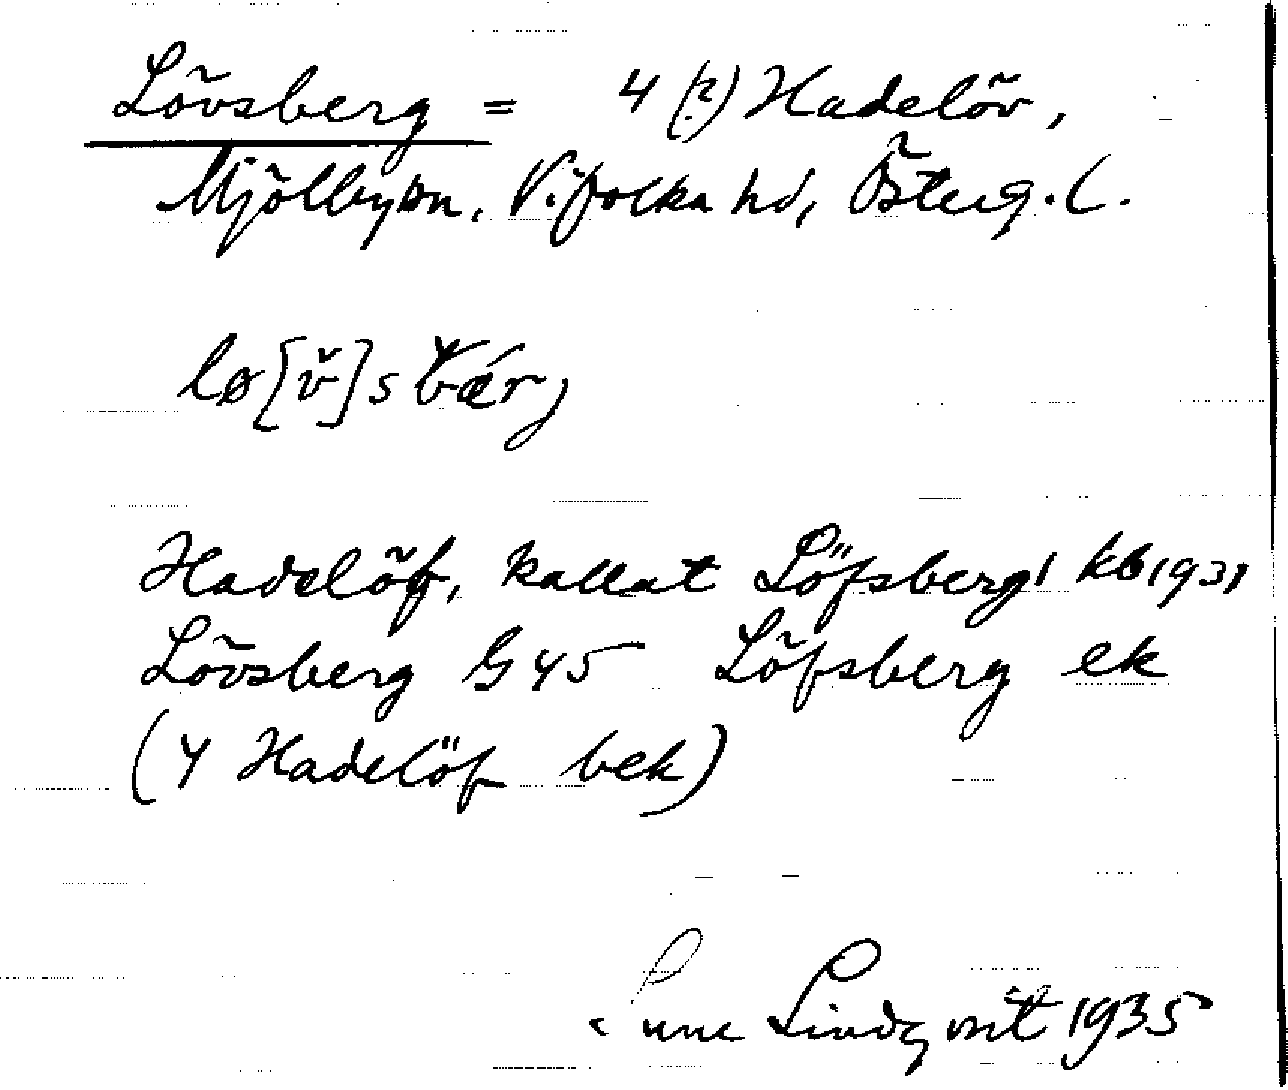 Lövsberg = 4 (?) Hadelöv,
Mjölby sn, Vifolka hd, Österg. l.
lø[v̆]s bǽr,
Hadelöf, kallat Löfsberg kb 1931
Lövsberg G 45 Löfsberg ek
(4 Hadelöf bek)
Sune Lindqvist 1935